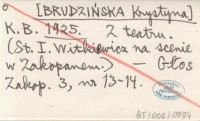 [BRUDZIŃSKA Krystyna]
K.B. 1925. Z teatru.
(St. I. Witkiewicz na scenie
w Zakopanem.) — Głos
Zakop. 3, nr 13-14.